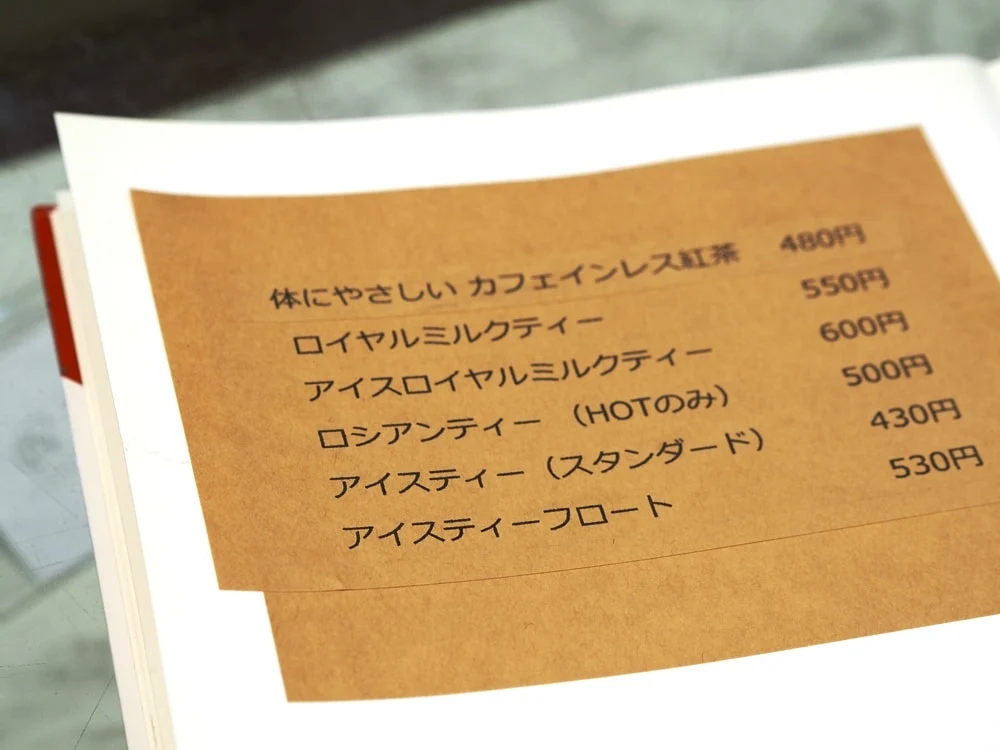 体にやさしい カフェインレス紅茶 480円
ロイヤルミルクティー 550円
アイスロイヤルミルクティー 600円
ロシアンティー （HOTのみ） 500円
アイスティー（スタンダード） 430円
アイスティーフロート 530円